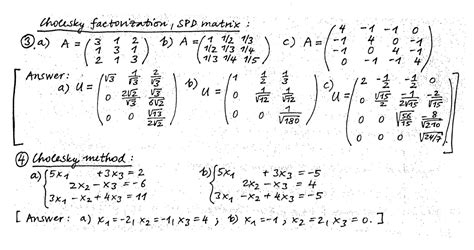 Cholesky factorization, SPD matrix :
③ a) A = (3 1 2; 1 3 1; 2 1 3) b) A = (1 1/2 1/3; 1/2 1/3 1/4; 1/3 1/4 1/5) c) A = (4 -1 -1 0; -1 4 0 -1; -1 0 4 -1; 0 -1 -1 4)
[ Answer:
a) U = (√3 1/√3 2/√3; 0 2√2/√3 √3/6√2; 0 0 √13/2√2) b) U = (1 1/2 1/3; 0 1/√12 1/√12; 0 0 1/√180) c) U = (2 -1/2 -1/2 0; 0 √15/2 -1/2√15 -2/√15; 0 0 √56/√15 -8/√210; 0 0 0 √24/7) ]
④ Cholesky method :
a) { 5x₁ + 3x₃ = 2 b) { 5x₁ + 3x₃ = -5
2x₂ - x₃ = -6 2x₂ - x₃ = 4
3x₁ - x₂ + 4x₃ = 11 3x₁ - x₂ + 4x₃ = -5
[ Answer: a) x₁ = -2, x₂ = -1, x₃ = 4 ; b) x₁ = -1, x₂ = 2, x₃ = 0. ]